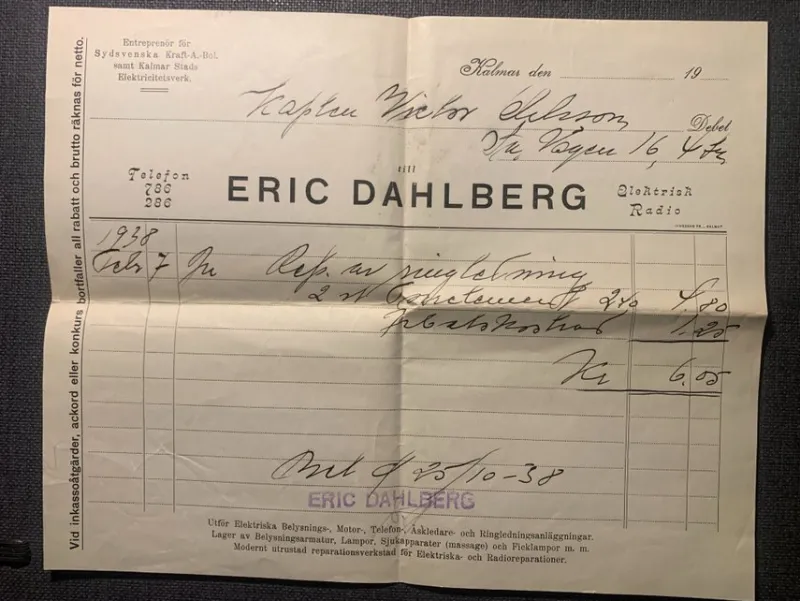 Entreprenör för
Sydsvenska Kraft-A.-Bol.
samt Kalmar Stads
Elektricitetsverk.
Kalmar den 19
Kapten Victor
Debet
Vägen 16, 4
till
Telefon
786
286
ERIC DAHLBERG
Elektrisk
Radio
1938
Febr 7 Rep. av ringledning
2 st 240 4.80
Arbetskostnad 1.25
Kr 6.05
Bet d/ 25/10-38
ERIC DAHLBERG
Utför Elektriska Belysnings-, Motor-, Telefon-, Åskledare- och Ringledningsanläggningar.
Lager av Belysningsarmatur, Lampor, Sjukapparater (massage) och Ficklampor m. m.
Modernt utrustad reparationsverkstad för Elektriska- och Radioreparationer.
Vid inkassoåtgärder, ackord eller konkurs bortfaller all rabatt och brutto räknas för netto.